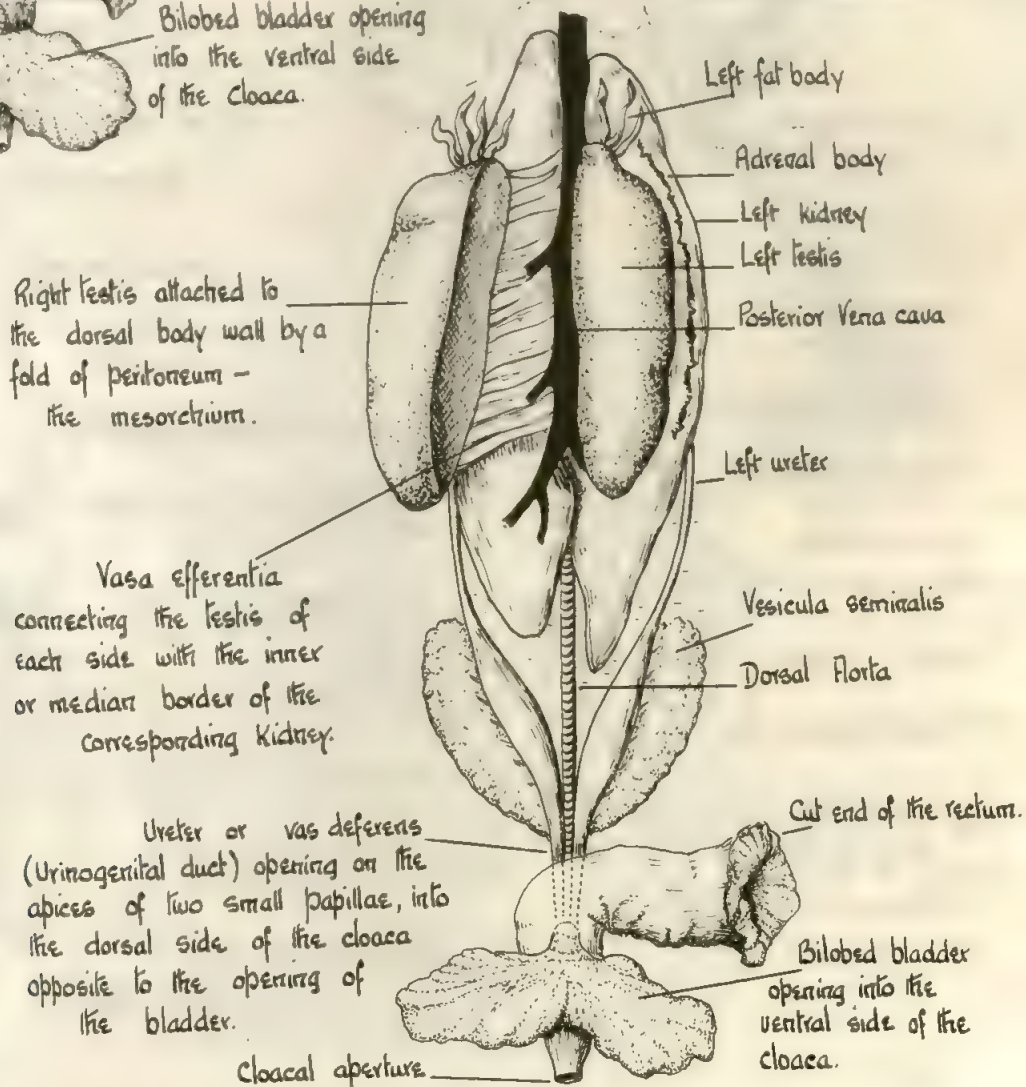 Bilobed bladder opening
into the ventral side
of the cloaca.
Left fat body
Adrenal body
Left kidney
Left testis
Posterior Vena cava
Right testis attached to
the dorsal body wall by a
fold of peritoneum –
the mesorchium.
Left ureter
Vasa efferentia
connecting the testis of
each side with the inner
or median border of the
corresponding kidney.
Vesicula seminalis
Dorsal Aorta
Cut end of the rectum.
Ureter or vas deferens
(Urinogenital duct) opening on the
apices of two small papillae, into
the dorsal side of the cloaca
opposite to the opening of
the bladder.
Bilobed bladder
opening into the
ventral side of the
cloaca.
Cloacal aperture